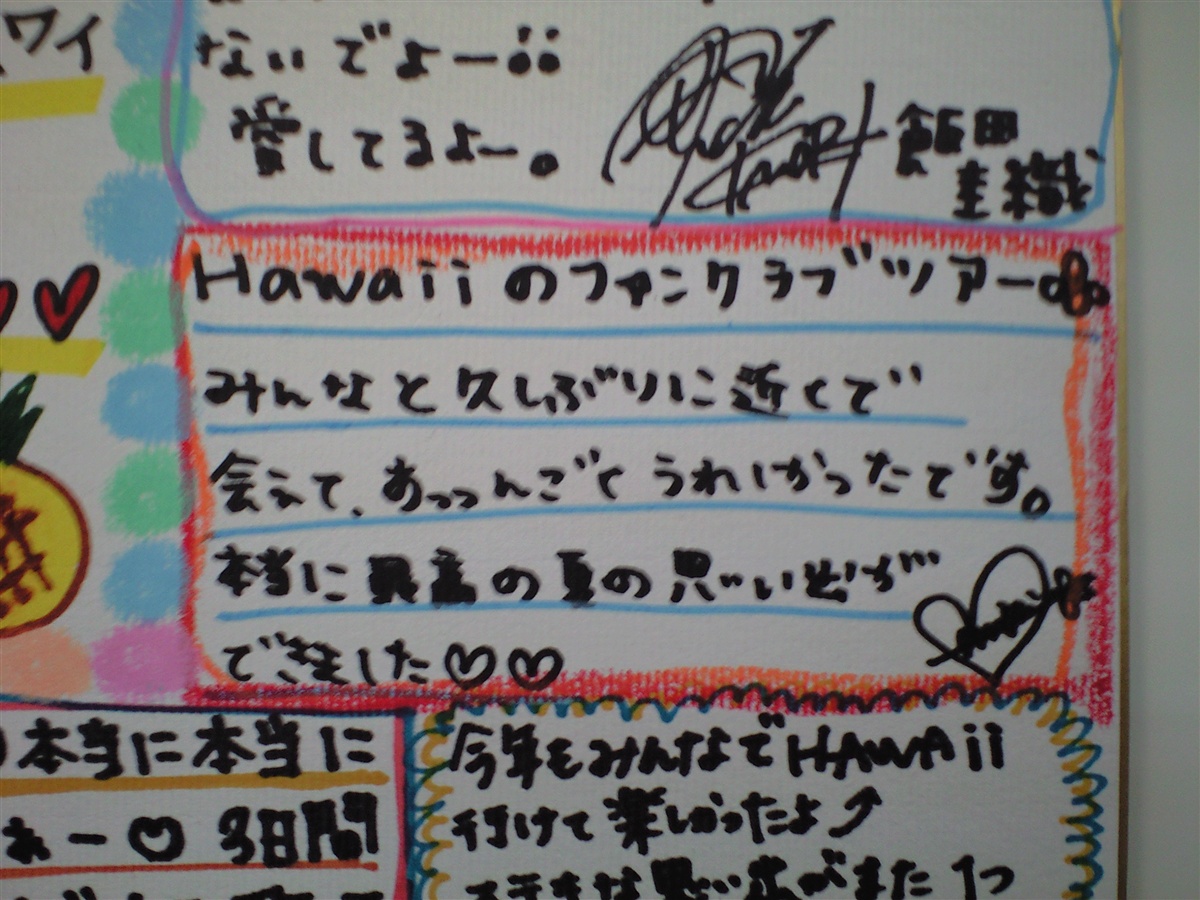 ワイ
ないでよー
愛してるよー。
飯田
圭織
Hawaiiのファンクラブツアー
みんなと久しぶりに近くで
会えて、あっっんごくうれしかったです。
本当に最高の夏の思い出が
できました♡♡
本当に本当に
ねー♡ 3日間
今年もみんなでHAWAii
行けて楽しかったよ↗
ステキな思い出がまた1つ